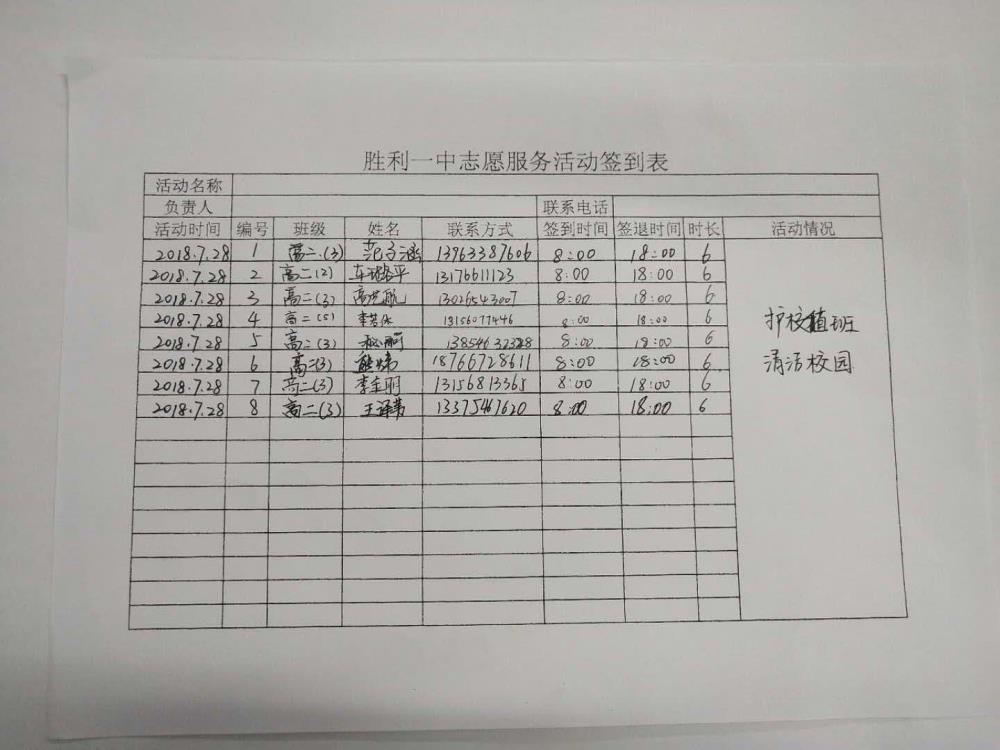 胜利一中志愿服务活动签到表
活动名称
负责人 联系电话
活动时间 编号 班级 姓名 联系方式 签到时间 签退时间 时长 活动情况
2018.7.28 1 高二.(3) 范子涵 13963387606 8:00 18:00 6
2018.7.28 2 高二(2) 13176611123 8:00 18:00 6
2018.7.28 3 高二(3) 13026543007 8:00 18:00 6
2018.7.28 4 高二(5) 13156077446 8:00 18:00 6
护校值班
2018.7.28 5 高二(3) 13854632328 8:00 18:00 6
2018.7.28 6 高二(3) 18766728611 8:00 18:00 6
清洁校园
2018.7.28 7 高二(3) 13156813365 8:00 18:00 6
2018.7.28 8 高二(3) 13375467620 8:00 18:00 6